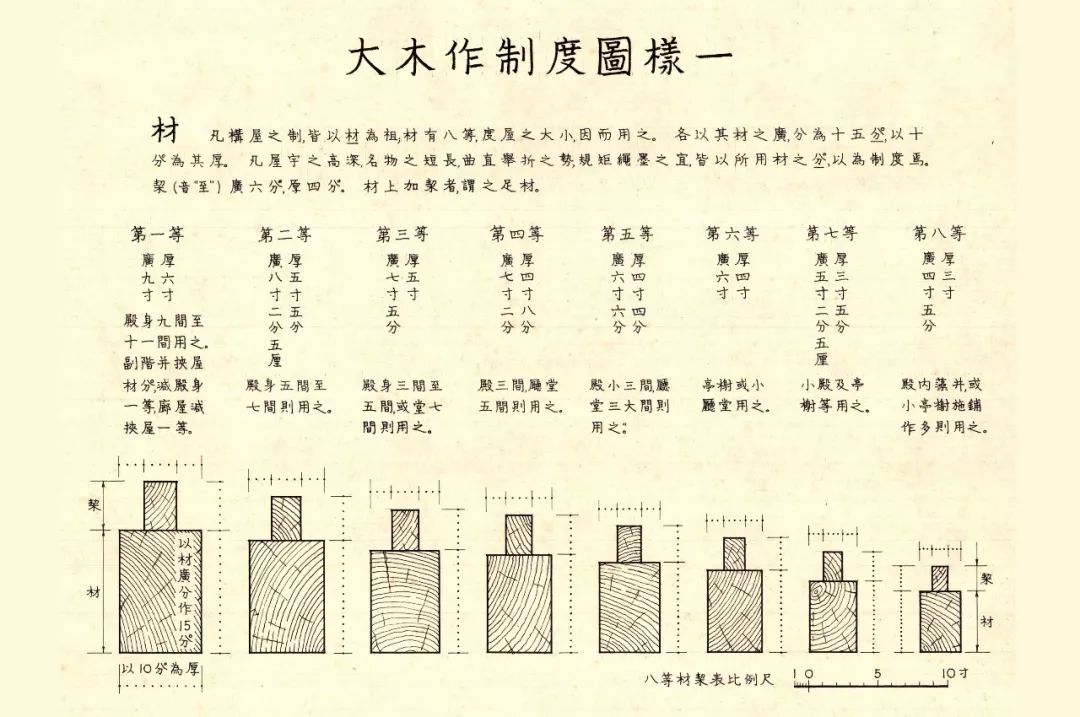 大木作制度圖樣一
材 凡構屋之制,皆以材為祖,材有八等,度屋之大小,因而用之。 各以其材之廣,分為十五分°,以十
分°為其厚。 凡屋宇之高深,名物之短長,曲直舉折之勢,規矩繩墨之宜,皆以所用材之分°,以為制度焉。
栔(音"至")廣六分°,厚四分°。 材上加栔者,謂之足材。
第一等
廣九寸
厚六寸
殿身九間至
十一間用之。
副階并挾屋
材分°減殿身
一等,廊屋減
挾屋一等。
第二等
廣八寸二分五厘
厚五寸五分
殿身五間至
七間則用之。
第三等
廣七寸五分
厚五寸
殿身三間至
五間,或堂七
間則用之。
第四等
廣七寸二分
厚四寸八分
殿三間,廳堂
五間則用之。
第五等
廣六寸六分
厚四寸四分
殿小三間,廳
堂三大間則
用之。
第六等
廣六寸
厚四寸
亭榭或小
廳堂用之。
第七等
廣五寸二分五厘
厚三寸五分
小殿及亭
榭等用之。
第八等
廣四寸五分
厚三寸
殿内藻井,或
小亭榭施鋪
作多則用之。
栔
材
以材廣分作15分°
以10分°為厚
栔
材
八等材栔表比例尺
1 0 5 10寸